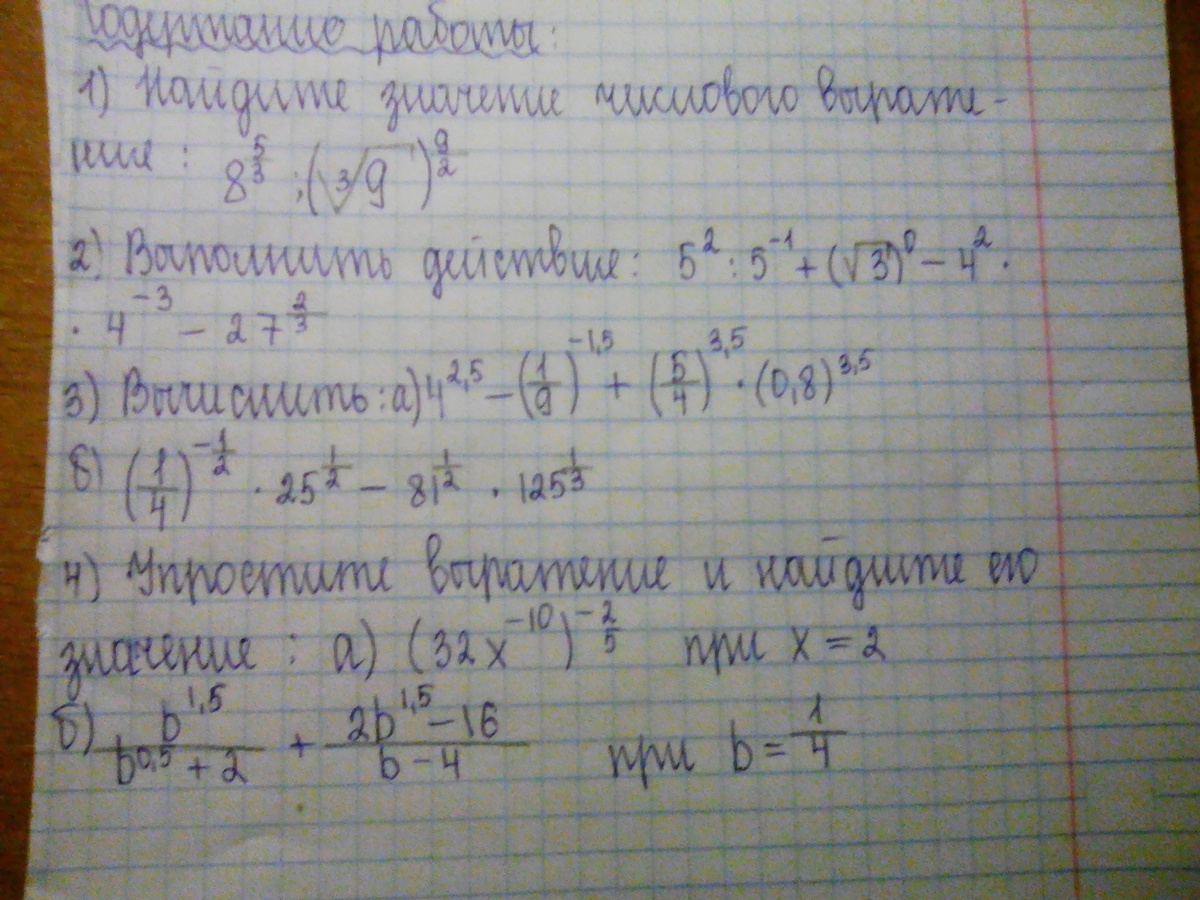 Содержание работы:
1) Найдите значение числового выраже-
ние : 8^{5/3} ; (∛9)^{9/2}
2) Выполнить действие: 5^2 : 5^{-1} + (√3)^0 - 4^2 ·
· 4^{-3} - 27^{2/3}
3) Вычислить: а) 4^{2,5} - (1/9)^{-1,5} + (5/4)^{3,5} · (0,8)^{3,5}
б) (1/4)^{-1/2} · 25^{1/2} - 81^{1/2} · 125^{1/3}
4) Упростите выражение и найдите его
значение : а) (32x^{-10})^{-2/5} при x = 2
б) b^{1,5}/(b^{0,5} + 2) + (2b^{1,5} - 16)/(b - 4) при b = 1/4